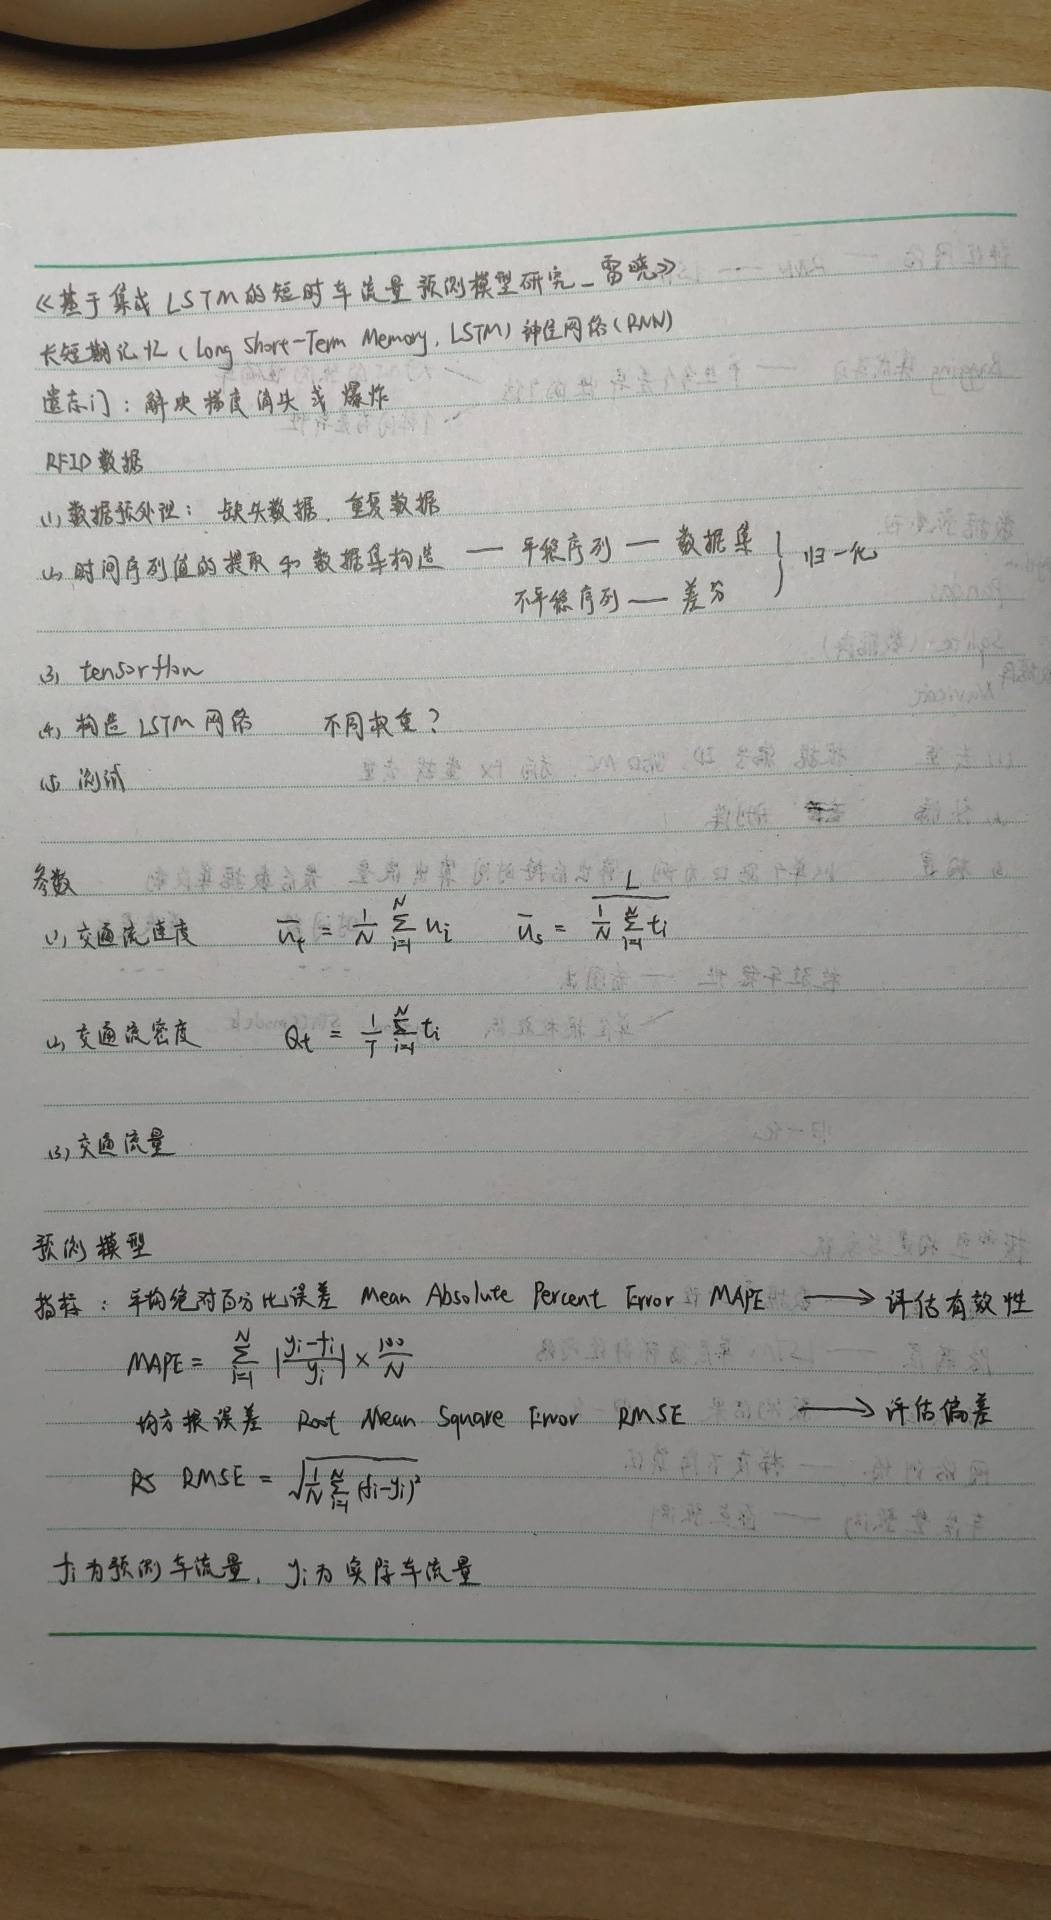 《基于集成LSTM的短时车流量预测模型研究_雷晓》
长短期记忆(Long Short-Term Memory, LSTM)神经网络(RNN)
遗忘门：解决梯度消失或爆炸
RFID数据
(1) 数据预处理：缺失数据、重复数据
(2) 时间序列值的提取和数据集构造 — 平稳序列 — 数据集 } 归一化
不平稳序列 — 差分
(3) tensorflow
(4) 构造LSTM网络 不同权重?
(5) 测试
参数
(1) 交通流速度 ūₜ = 1/N ∑ᵢ₌₁ᴺ uᵢ ūₛ = L / (1/N ∑ᵢ₌₁ᴺ tᵢ)
(2) 交通流密度 Qt = 1/T ∑ᵢ₌₁ᴺ tᵢ
(3) 交通流量
预测模型
指标：平均绝对百分比误差 Mean Absolute Percent Error MAPE → 评估有效性
MAPE = ∑ᵢ₌₁ᴺ |(yᵢ-fᵢ)/yᵢ| × 100/N
均方根误差 Root Mean Square Error RMSE → 评估偏差
RS RMSE = √(1/N ∑ᵢ₌₁ᴺ (fᵢ-yᵢ)²)
fᵢ为预测车流量，yᵢ为实际车流量